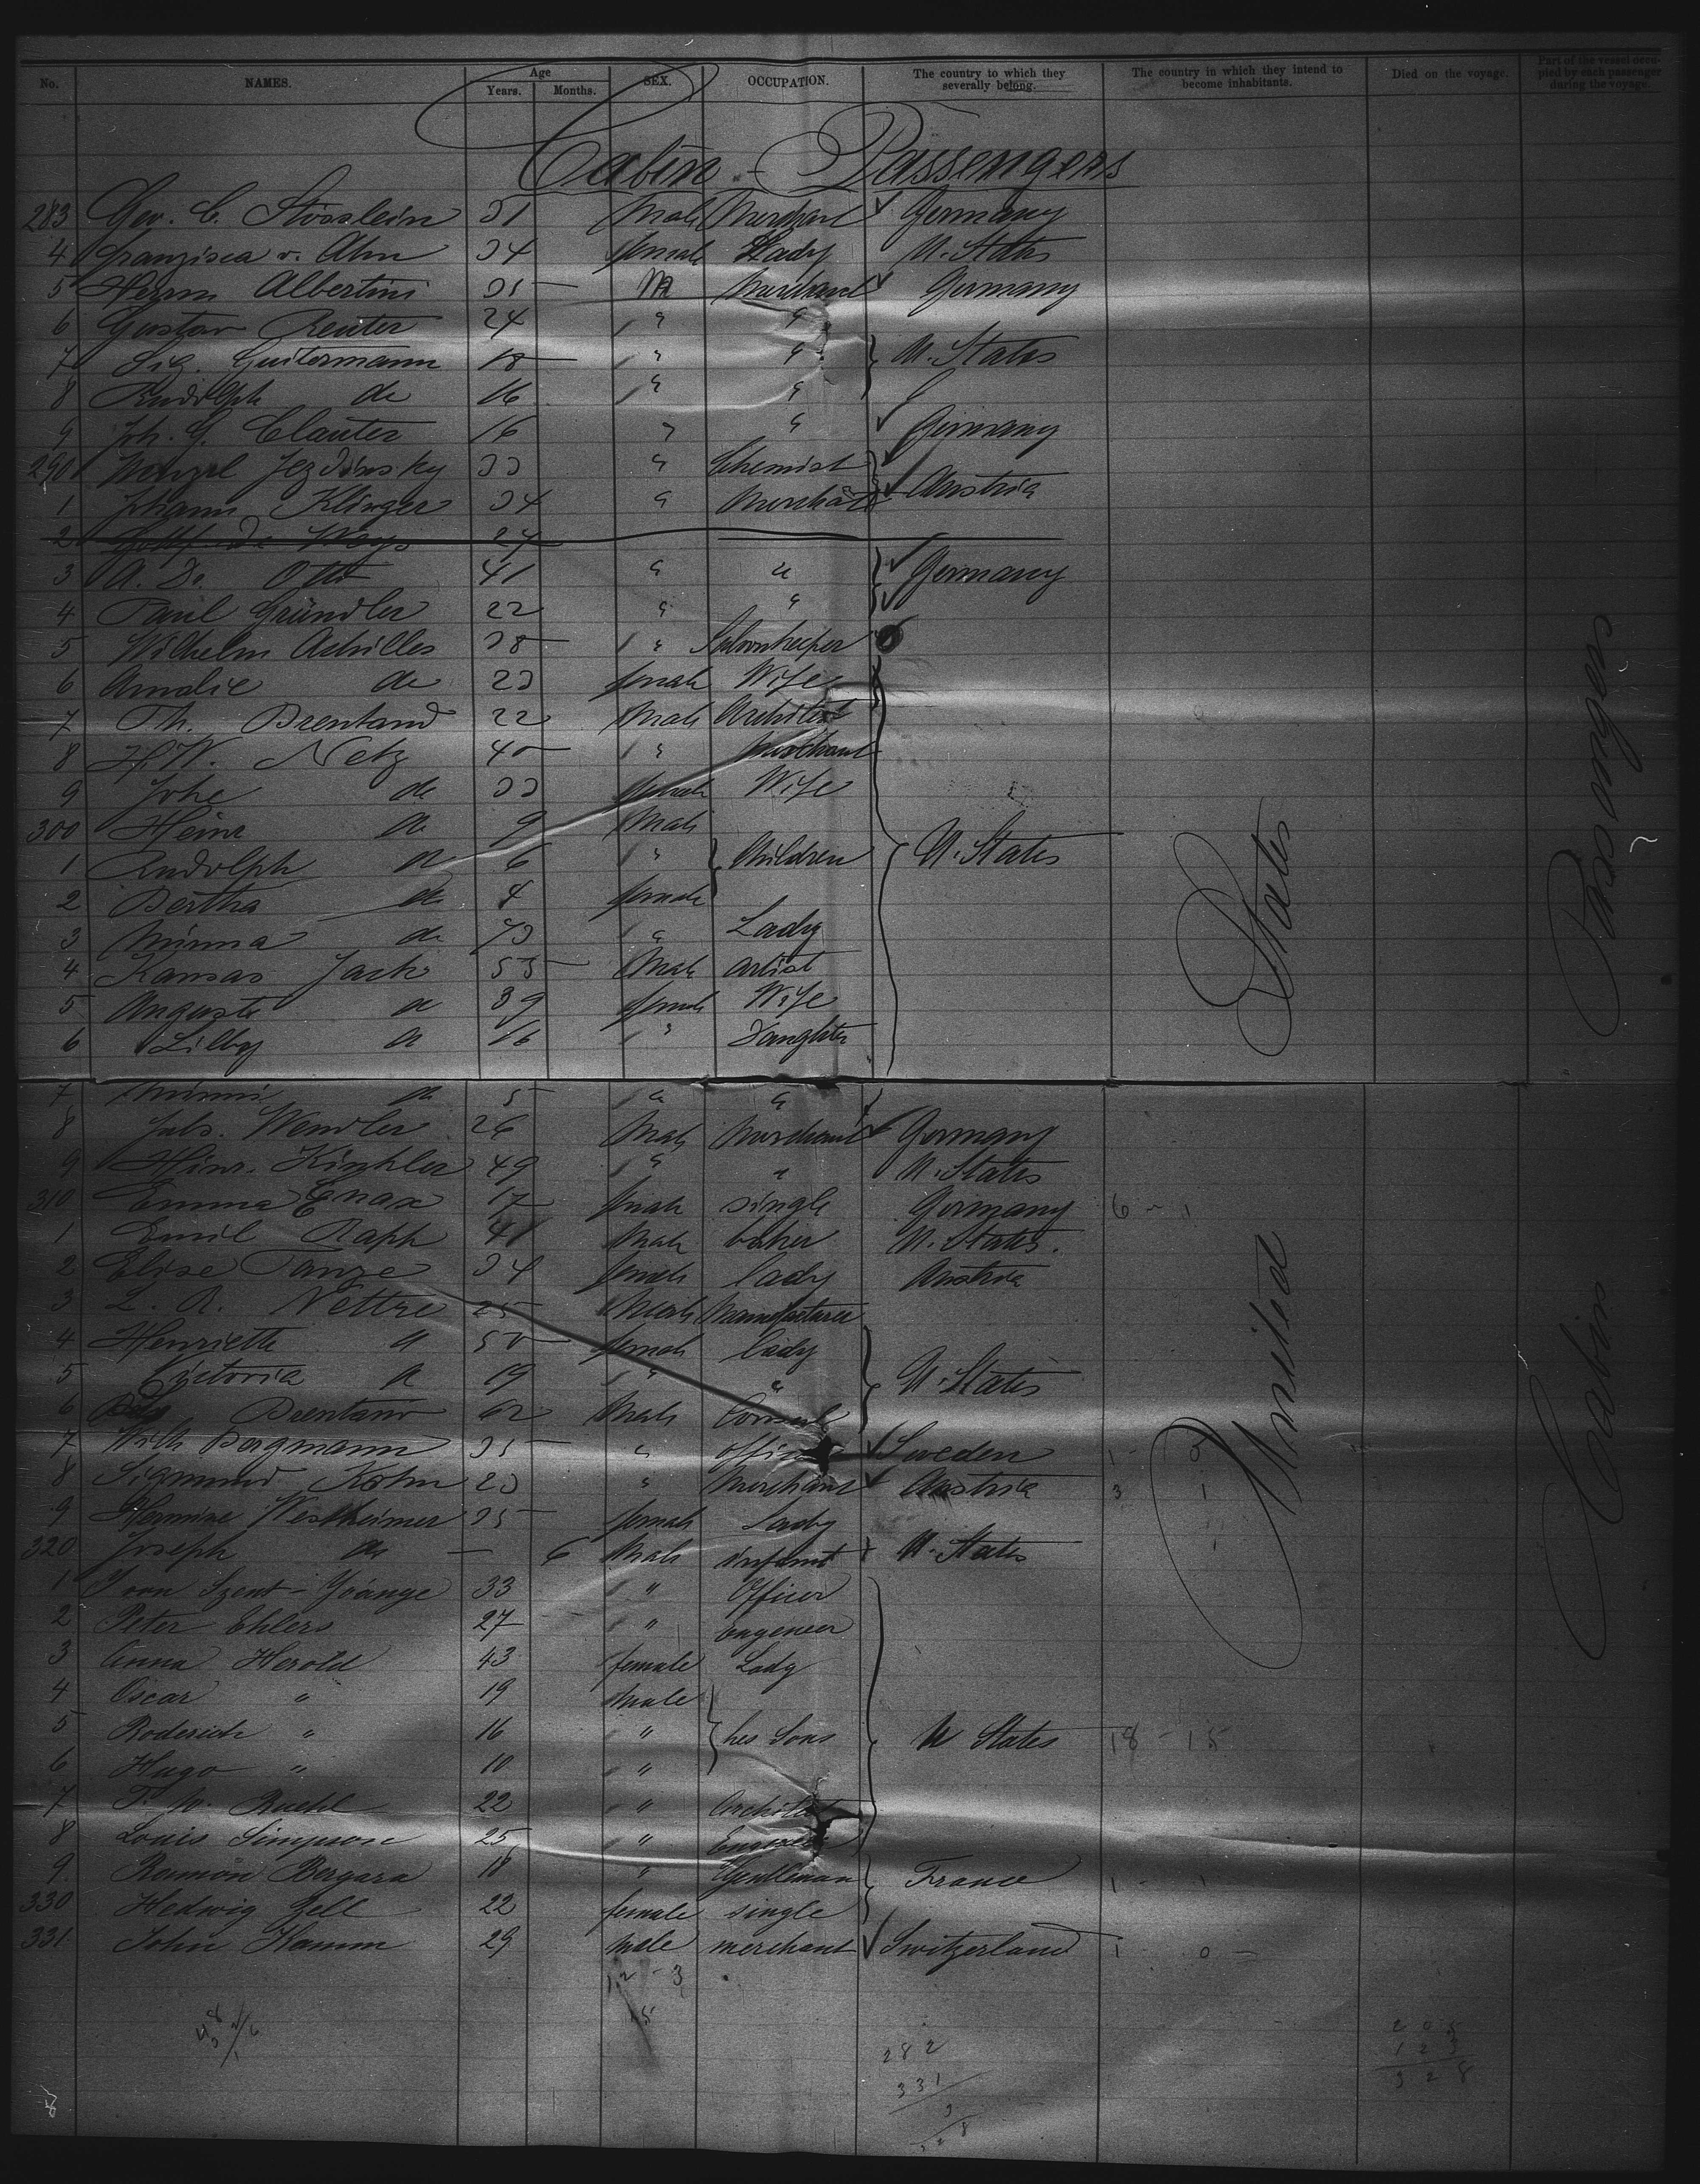 No. NAMES. Age Years. Months. SEX. OCCUPATION. The country to which they severally belong. The country in which they intend to become inhabitants. Died on the voyage. Part of the vessel occupied by each passenger during the voyage.
Cabin - Passengers
283 Geo. C. Stösslein 31 Male Merchant Germany
4 Franzisca v. Ahn 34 female Lady U. States
5 Herm Albertini 35 M Merchant Germany
6 Gustav Reuter 24 " "
7 Sig. Guitermann 18 " " U. States
8 Rudolph do 16 " "
9 Joh. G. Clauter 16 " " Germany
290 Wenzel Jezdinsky 33 " Chemist
1 Johann Klinger 34 " Merchant Austria
2 24
3 A. D. Otto 41 " " Germany
4 Paul Gründler 22 " "
5 Wilhelm Achilles 38 " Saloonkeeper
6 Amalie do 23 female Wife
7 Th. Brentano 22 Male Architect
8 H.W. Netz 40 " Merchant
9 Johe do 33 female Wife
300 Heinr do 9 Male
1 Rudolph do 6 " Children U. States
2 Bertha do 4 female
3 Minna do 73 " Lady
4 Kansas Jack 55 Male artist
5 Auguste do 39 female Wife
6 Lilly do 16 " Daughter
7 Minni do 5 " "
8 Juls. Wendler 26 Male Merchant Germany
9 Hinr. Kinkler 49 " " U. States
310 Emma Enax 17 female single Germany 6 - 1
1 Emil Raph 41 Male baker U. States.
2 Elise Tanze 34 female lady Austria
3 L. A. Nettre 25 Male Manufacturer
4 Henriette do 50 female lady
5 Victoria do 19 " " U. States
6 Brentano 62 Male Consul
7 Wilh Bergmann 35 " officer Sweden 1 - 0
8 Sigmund Kohn 23 " Merchant Austria 3 1
9 Hermine Westheimer 25 female Lady
320 Joseph do — 6 Male infant U. States
1 Ivan Szent-Ivánge 33 " Officer
2 Peter Ehlers 27 " Engeneer
3 Anna Herold 43 female Lady
4 Oscar " 19 Male
5 Roderich " 16 " hes Sons U States 18 - 15
6 Hugo " 10 "
7 F. W. Ruehl 22 " Architect
8 Louis Simpson 25 " Engeneer
9 Ramón Bergara 18 " Gentleman France 1 - 1
330 Hedwig Gell 22 female single
331 John Hamm 29 male merchant Switzerland 1 - 0
United States
Cabin Passengers
12 - 3
15
282
331
328